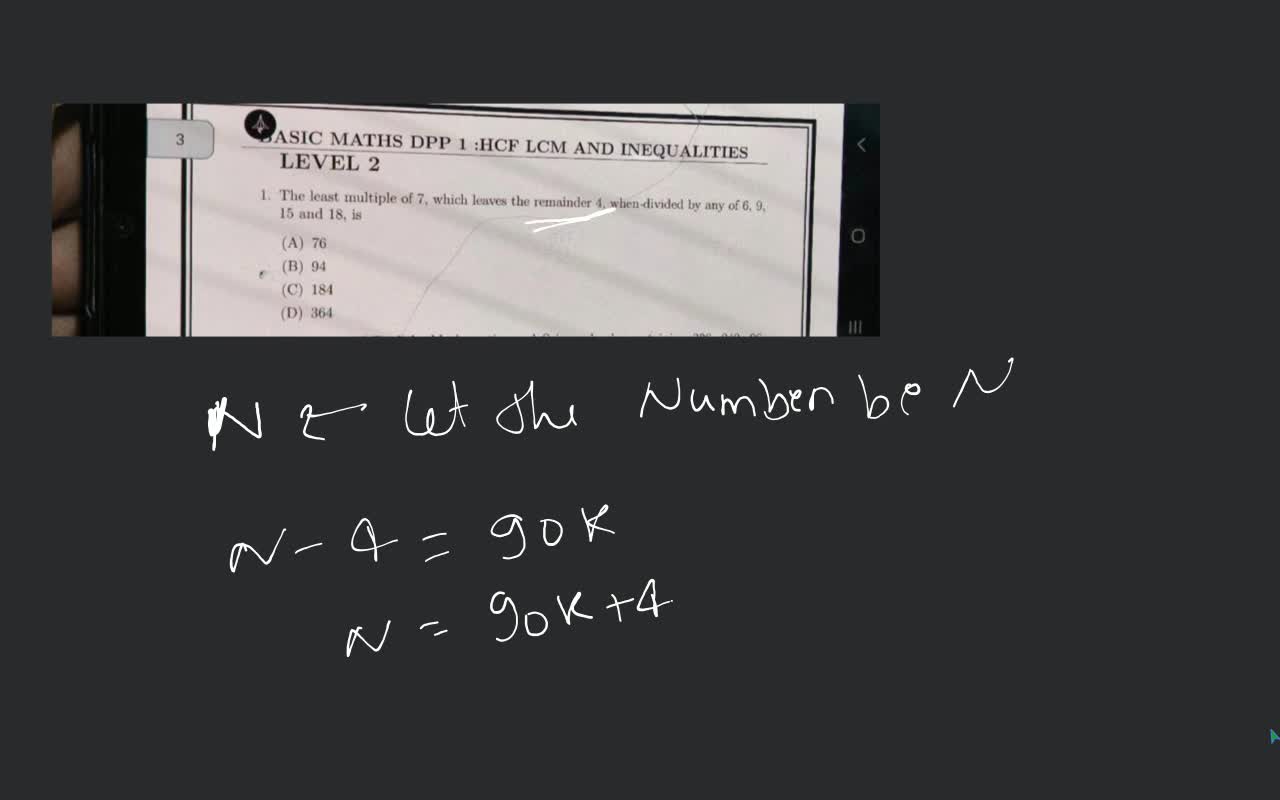 3
BASIC MATHS DPP 1 :HCF LCM AND INEQUALITIES
LEVEL 2
1. The least multiple of 7, which leaves the remainder 4, when divided by any of 6, 9,
15 and 18, is
(A) 76
(B) 94
(C) 184
(D) 364
N ← Let the Number be N
N - 4 = 90K
N = 90K+4